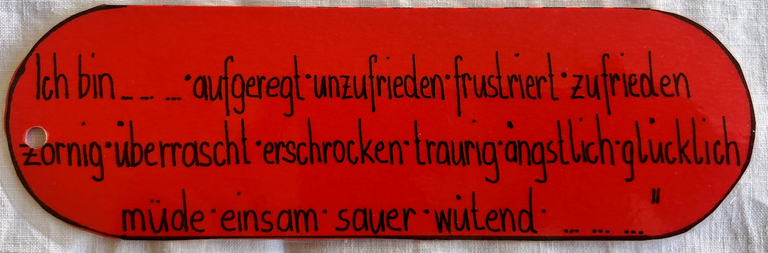 Ich bin _ _ _ · aufgeregt · unzufrieden · frustriert · zufrieden
zornig · überrascht · erschrocken · traurig · ängstlich · glücklich
müde · einsam · sauer · wütend · _ _ _ "